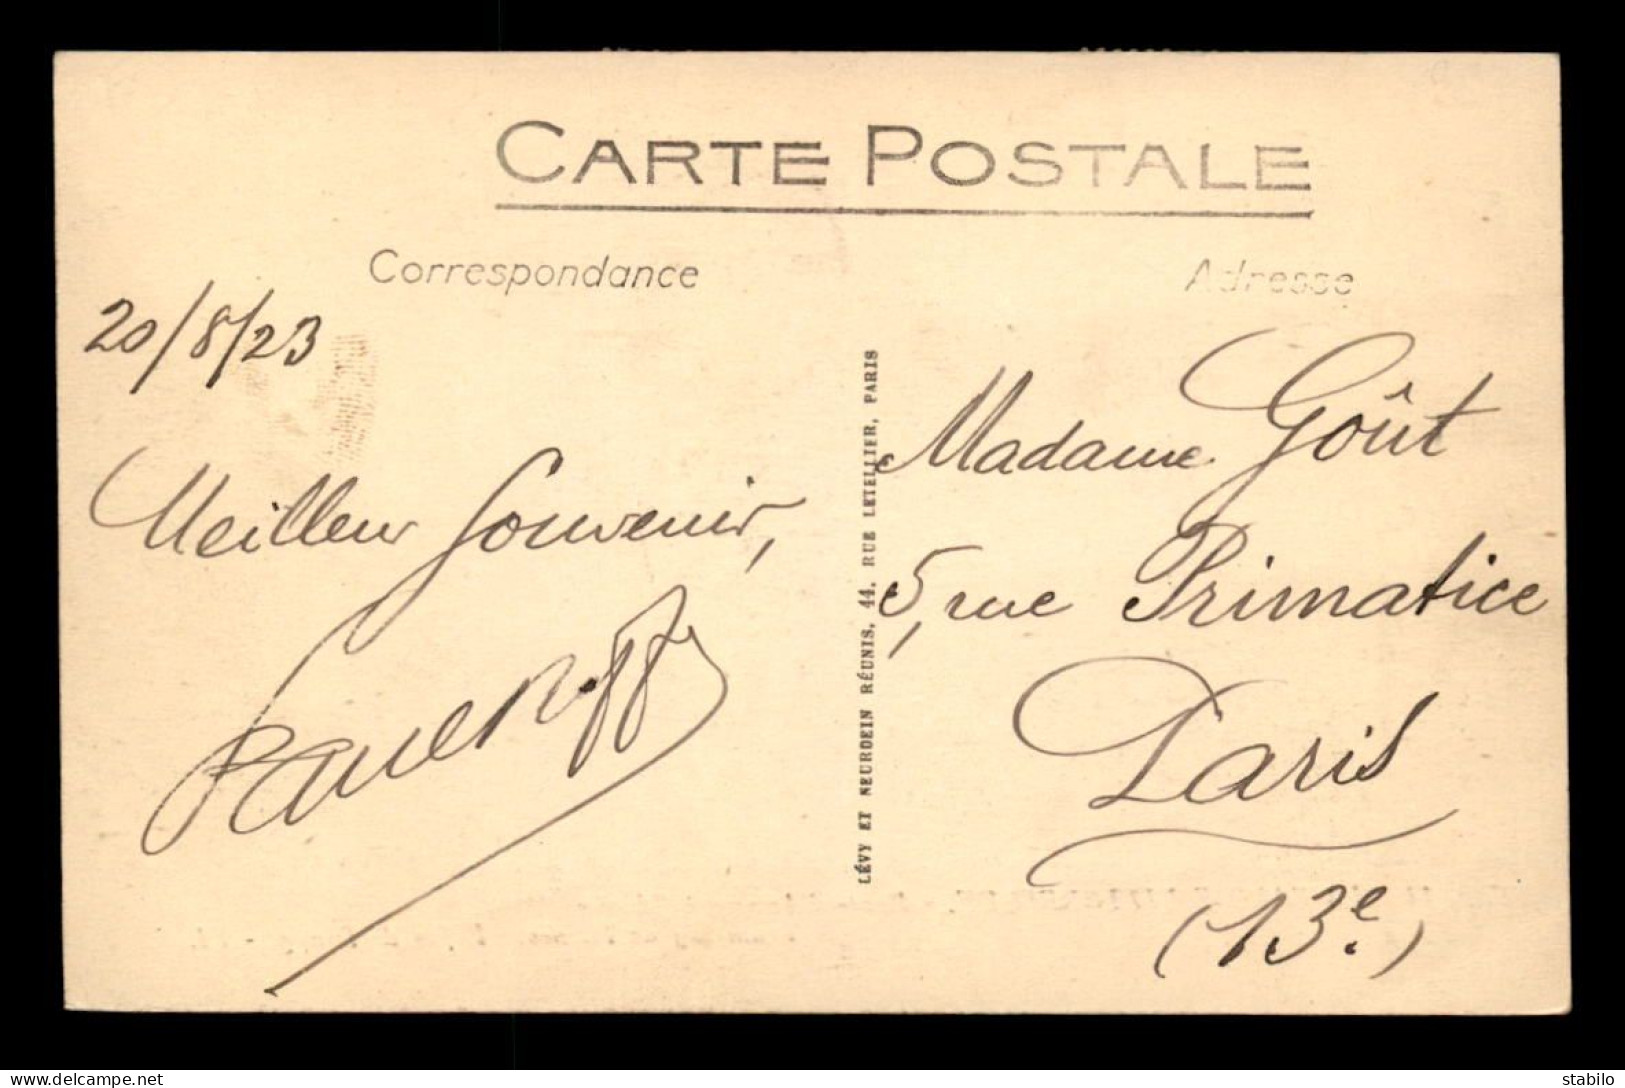 CARTE POSTALE
Correspondance
Adresse
20/8/23
Meilleur Souvenir,
LÉVY ET NEURDEIN RÉUNIS, 44, RUE LETELLIER, PARIS
Madame Goût
5, rue Primatice
Paris
(13e)
delcampe.net
stabilo